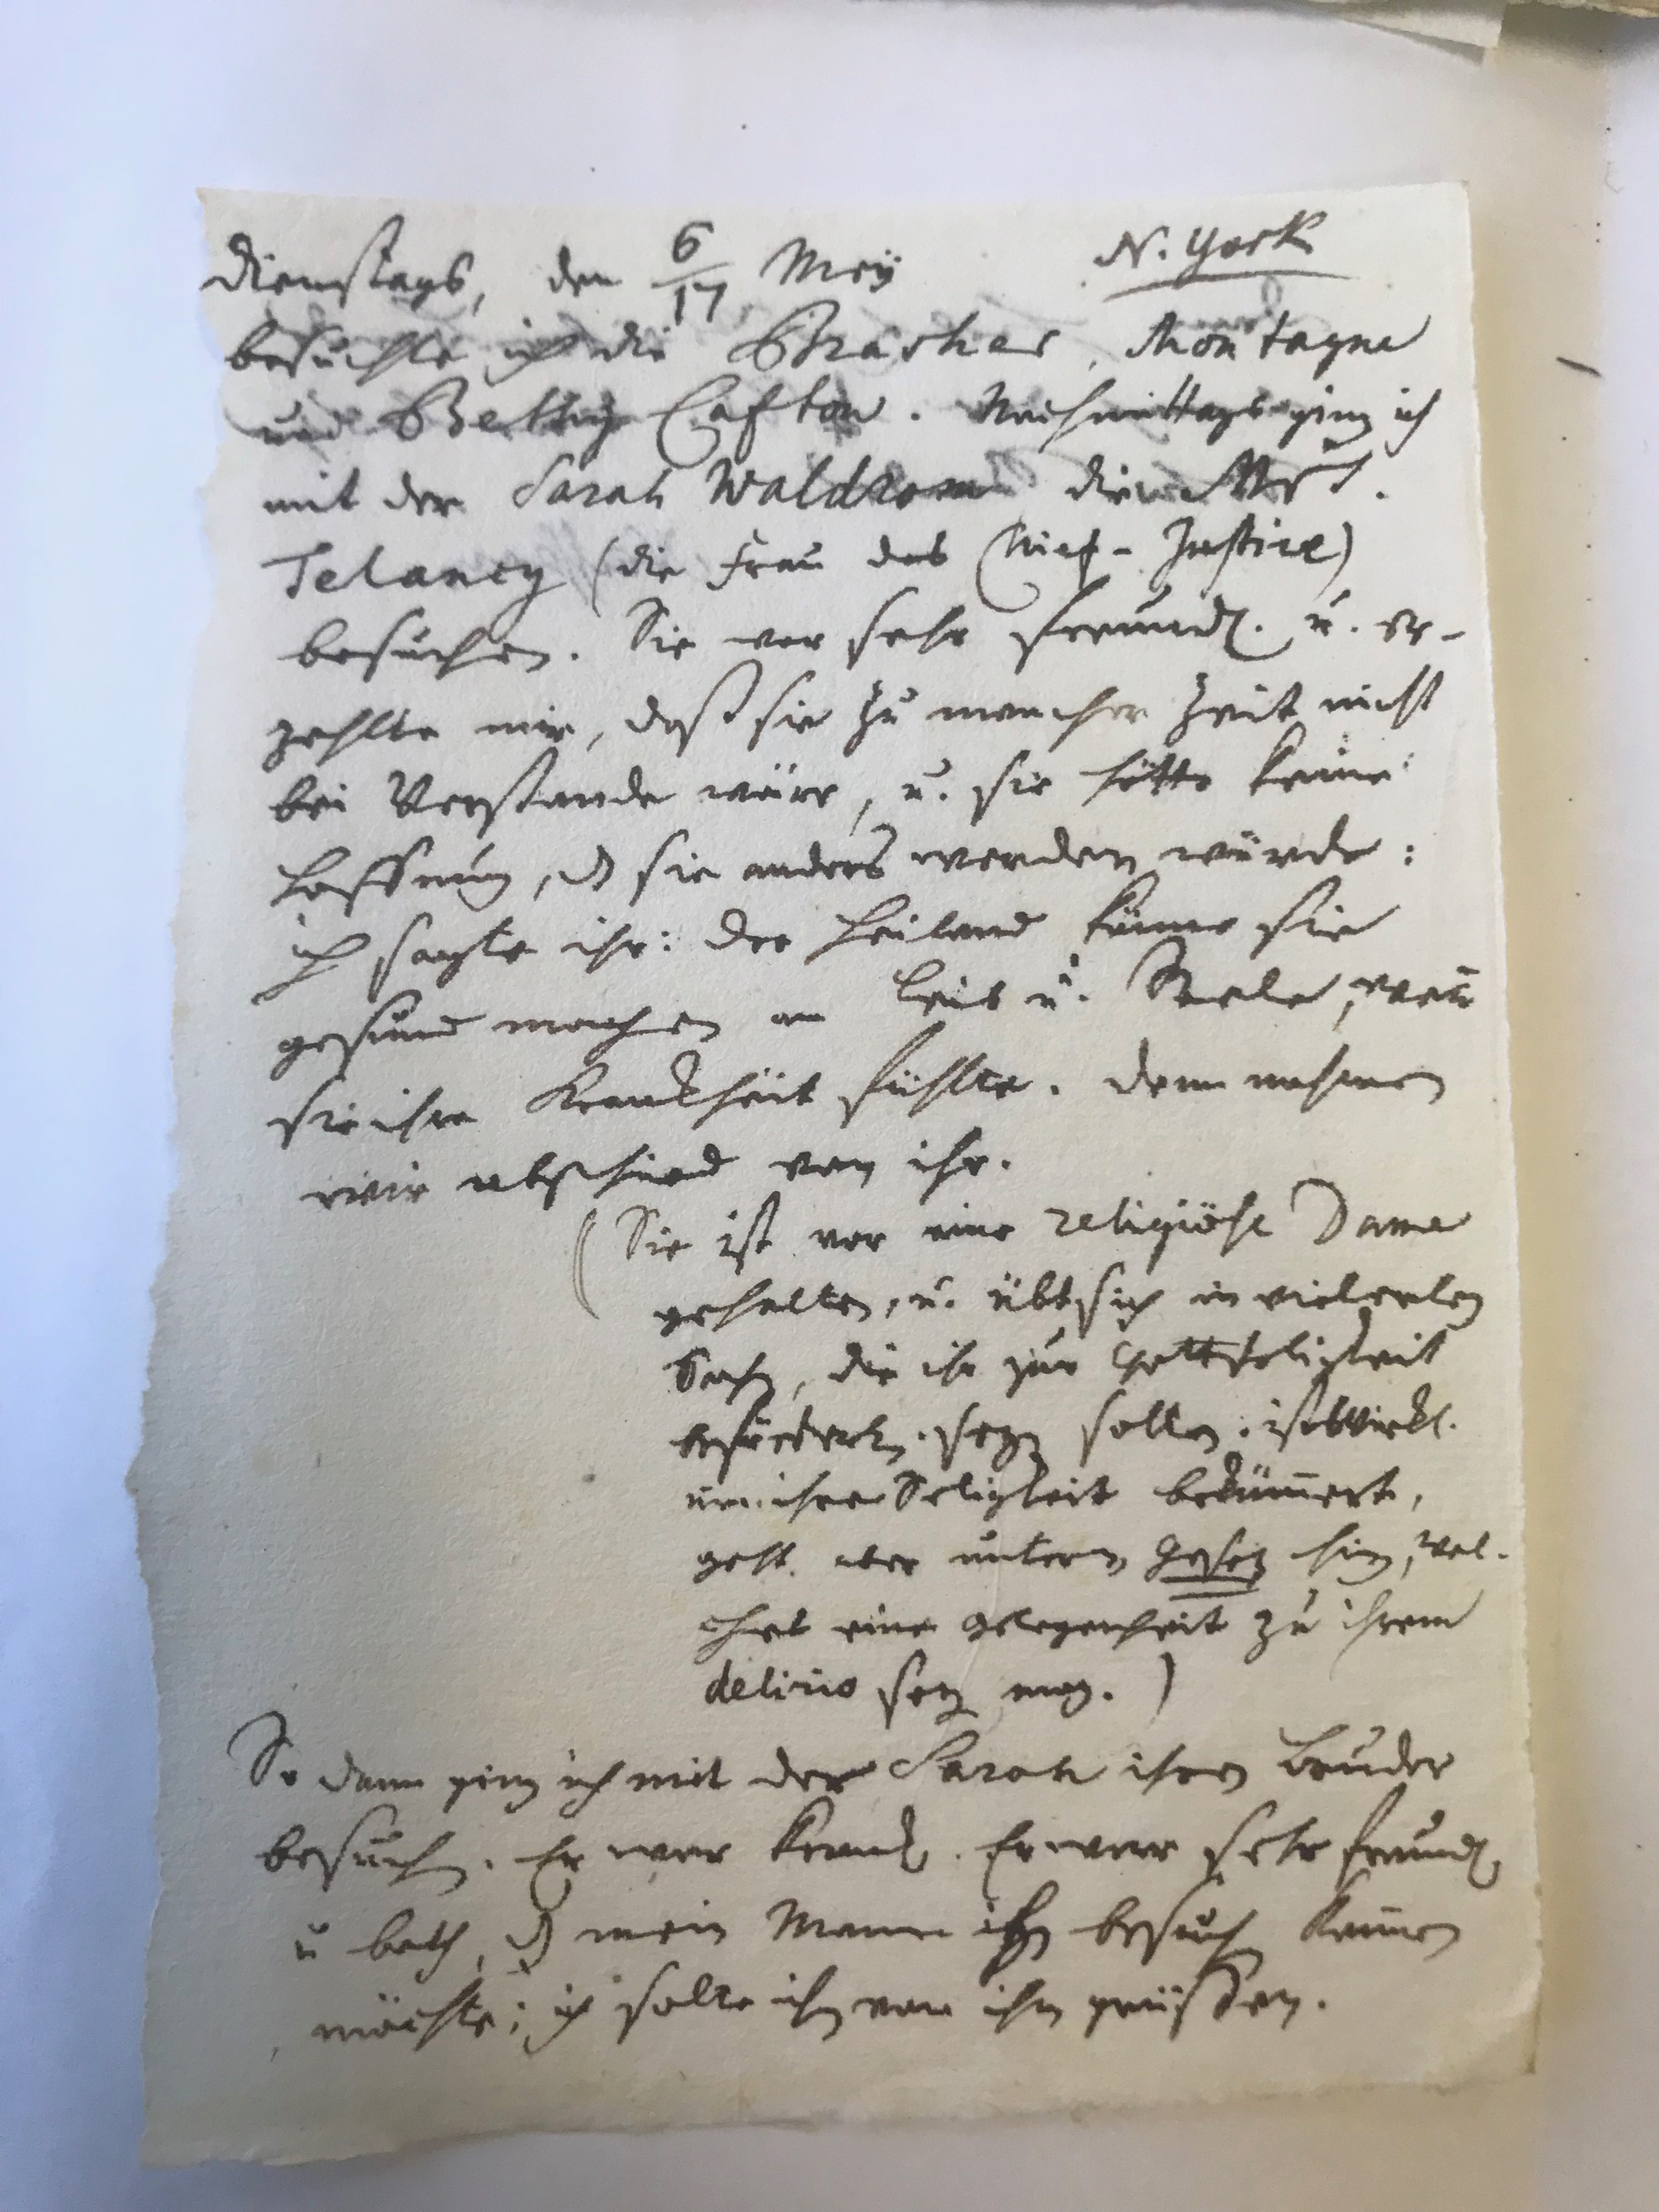 Dienstags, den 6/17 Meÿ N. York
besuchte ich die Brasher, Montagne
und Betty Cafton. Nachmittags ging ich
mit der Sarah Waldrom die Mrs.
Telancy (die Frau des Chief-Justice)
besuchen. Sie war sehr freundl. u. er-
zehlte mir, daß sie zu mancher Zeit nicht
bei Verstande wäre, u. sie hätte keine
Hoffnung, daß sie anders werden würde:
ich sagte ihr: der Heiland könne sie
gesund machen an Leib u. Seele, wen̄
sie ihre Krankheit fühlte. Dann nahmen
wir abschied von ihr.
(Sie ist vor eine religiöse Dame
gehalten, u. übt sich in vielerley
Sachen, die ihr zur Gottseligkeit
beförderl. seyn sollen; ist wirkl.
um ihre Seligkeit beküm̄ert,
geht aber unterm Gesetz hin, wel-
ches eine gelegenheit zu ihrem
delirio seyn mag.)
So dann ging ich mit der Sarah ihren Bruder
besuchen. Er war krank. Er war sehr freundl.
u bath, daß mein Mann ihn besuchen kommen
möchte; ich solte ihn von ihm grüßen.